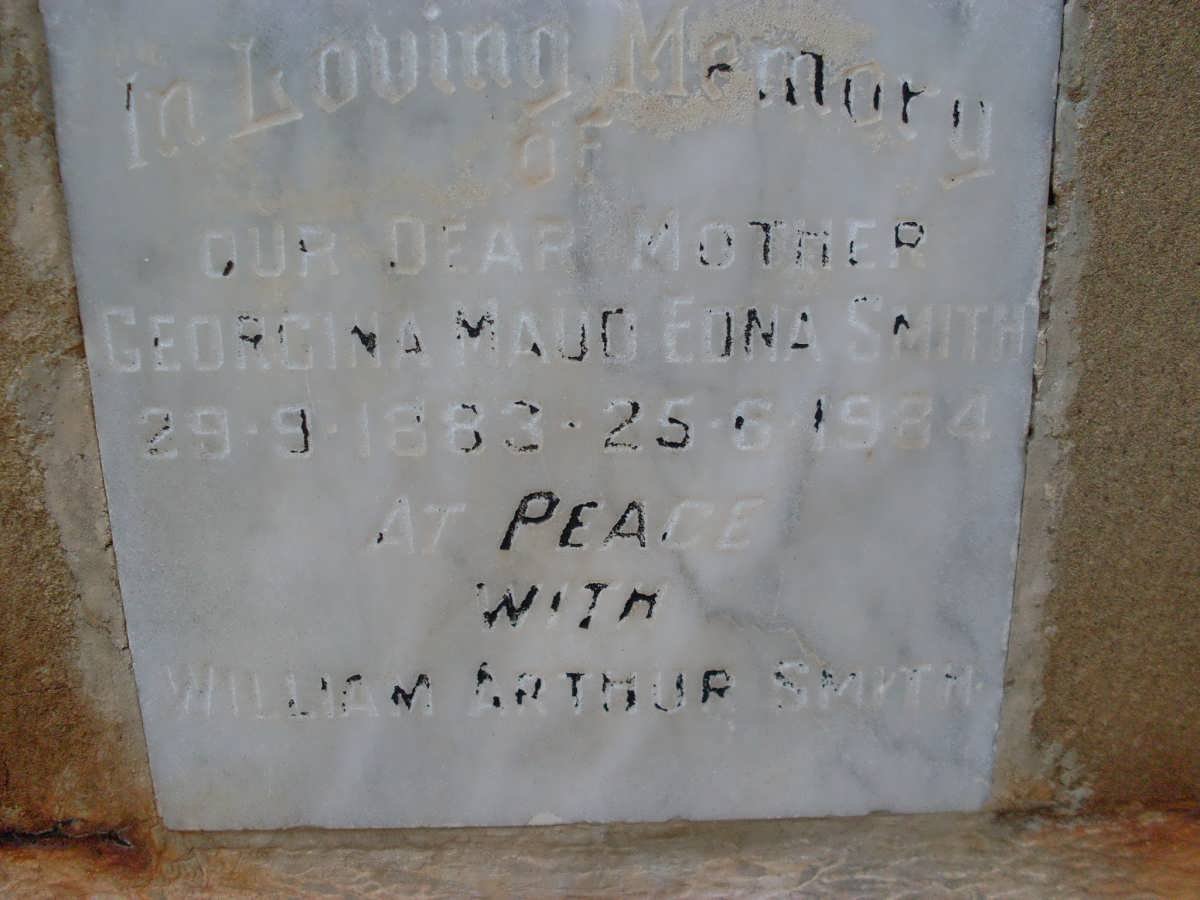 In Loving Memory
of
OUR DEAR MOTHER
GEORGINA MAUD EDNA SMITH
29·9·1883·25·6·1984
AT PEACE
WITH
WILLIAM ARTHUR SMITH